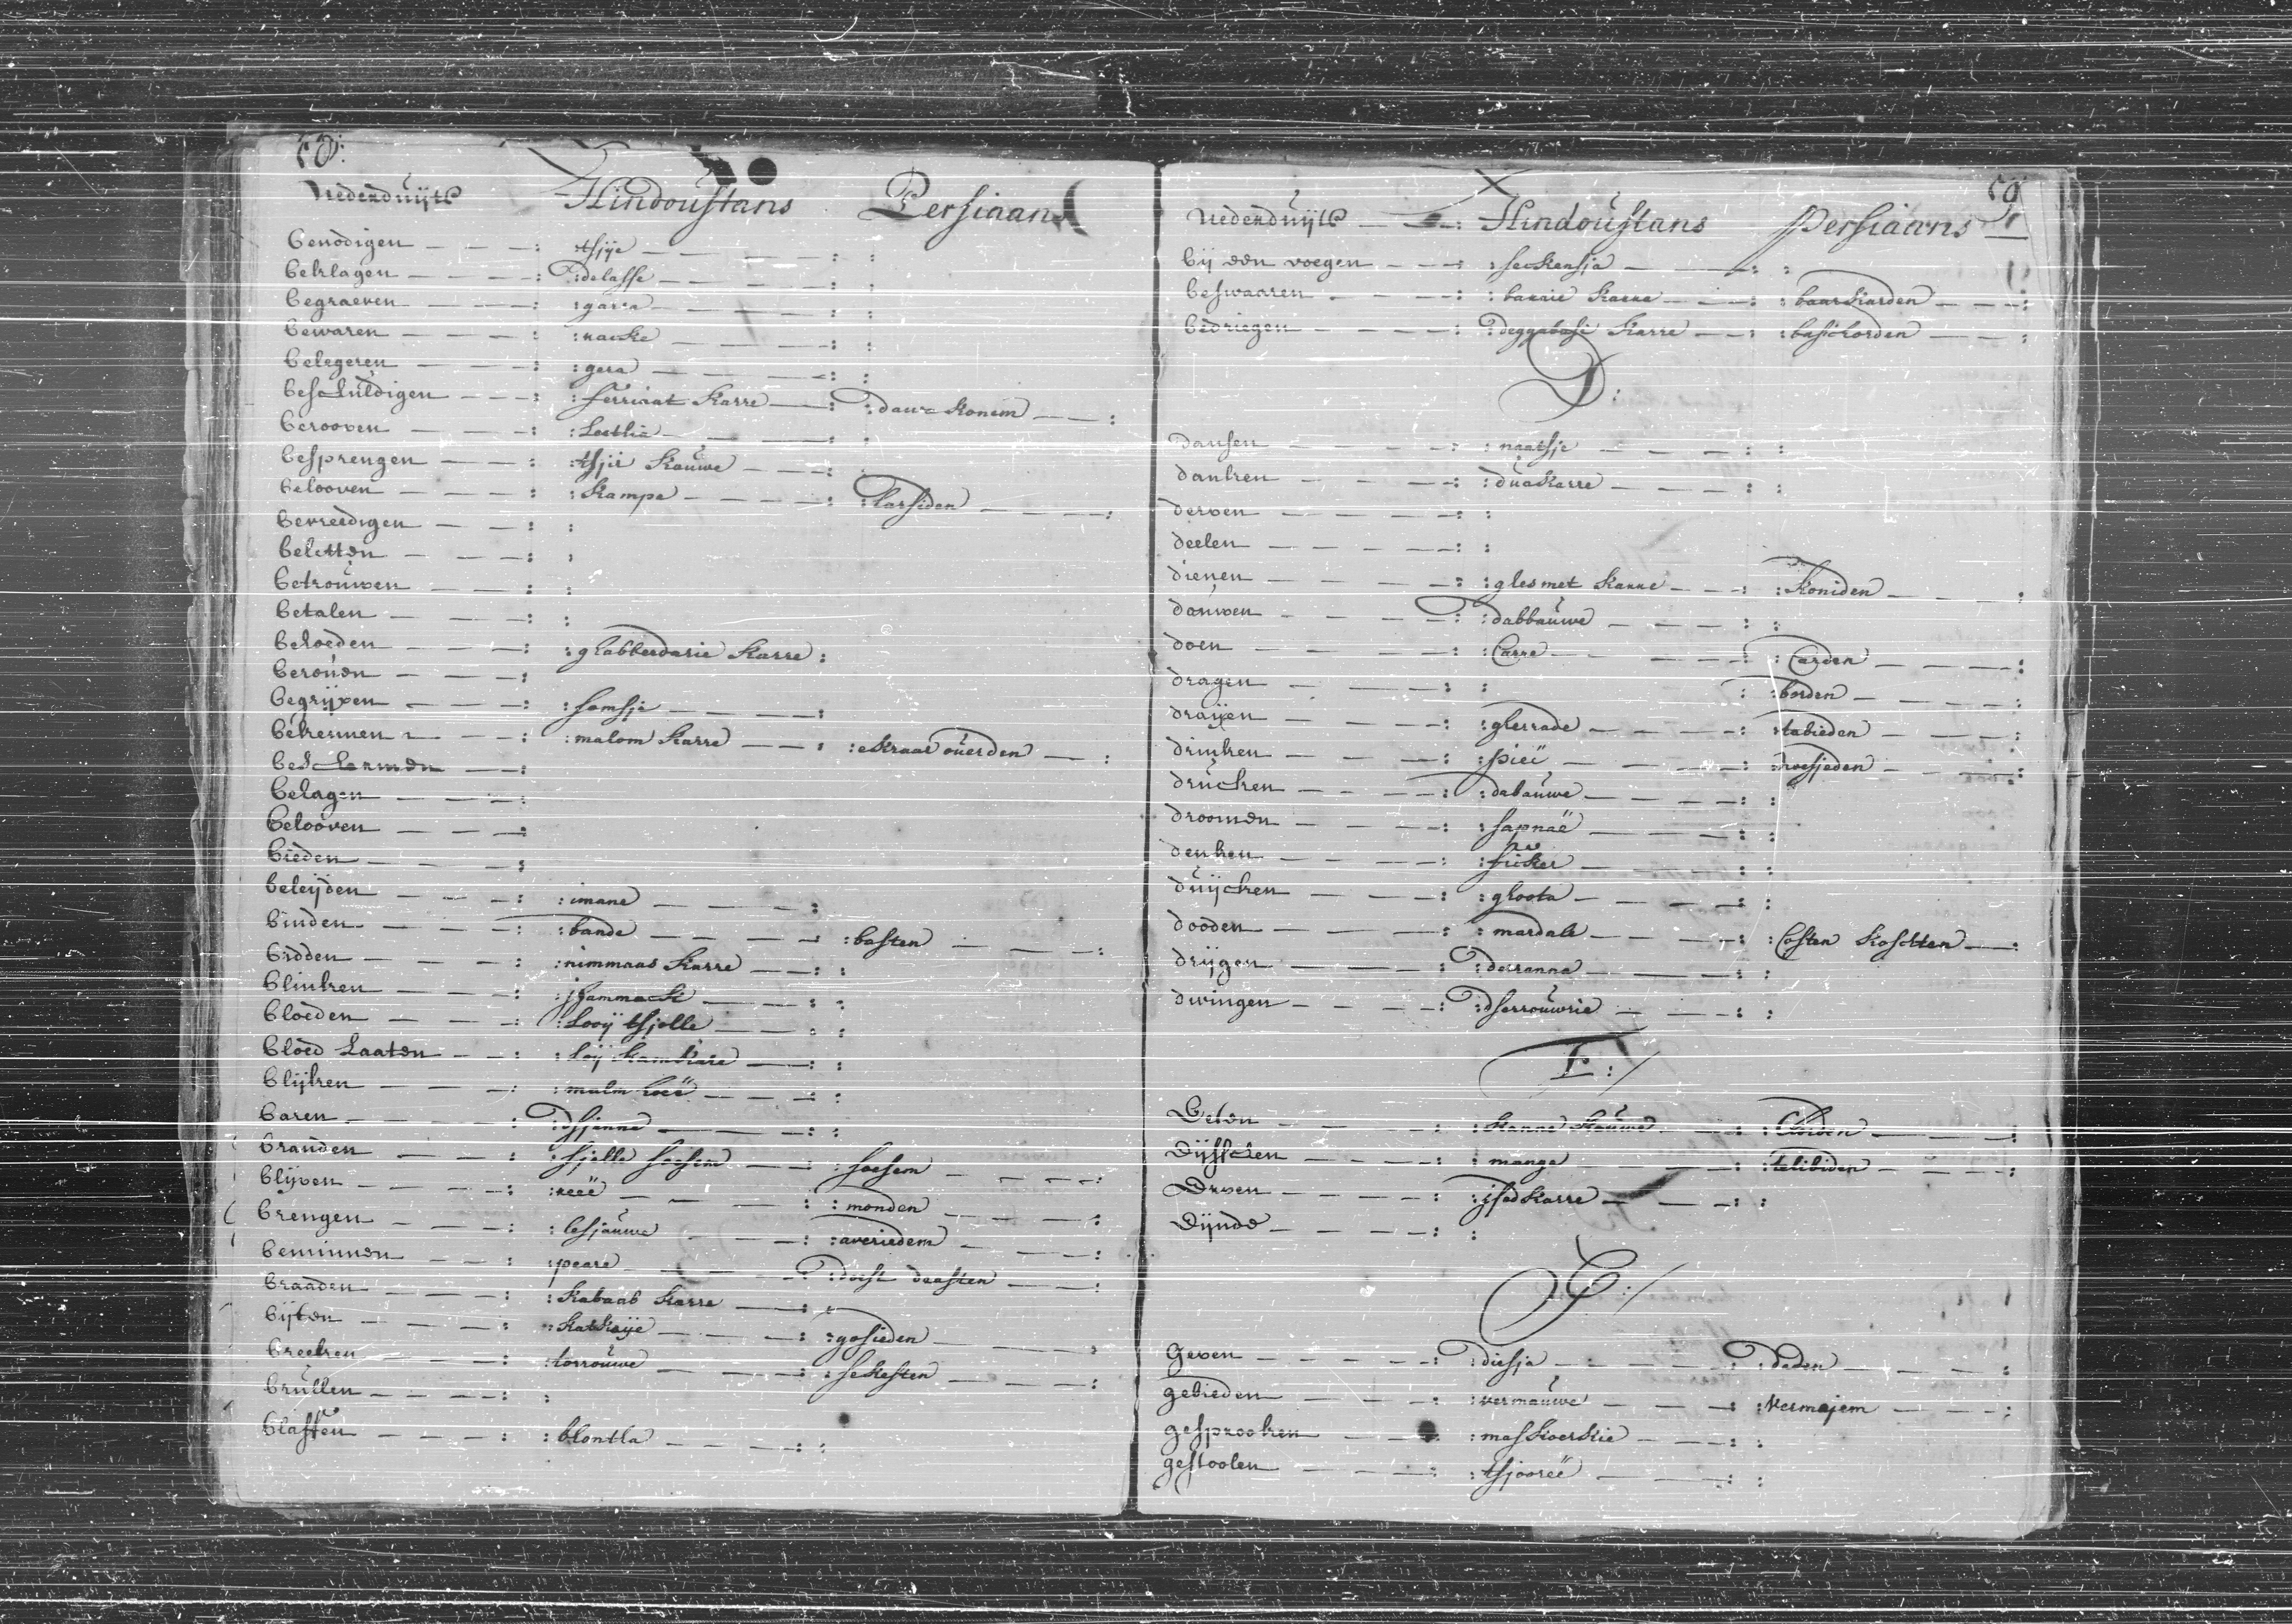 58:
Nederduijts Hindoustans Persiaans
benodigen — — — : tsjije — — — : :
beklagen — — — : : delasse — — — : :
begraeven — — — : : garra — — — : :
bewaren — — — : : racke — — — : :
belegeren — — — : : gera — — — : :
beschuldigen — — : : ferriaat karre — : : dawa konem — — :
berooven — — — : : Loethia — — — : :
besprengen — — — : : tsjir kauwe — — : :
belooven — — — : : kampa — — — : : tarsiden — — — :
bevreedigen — — : :
beletten — — — : :
betrouwen — — — : :
betalen — — — : :
behoeden — — — : : ghabberdarie karre :
berouen — — — :
begrijpen — — — : : somsje — — — :
bekennen — — — : : malom karre — — : : ekraar ouerden — :
beschermen — — :
belagen — — — :
belooven — — — :
bieden — — — :
beleijden — — — : : imane — — — :
binden — — — : : bande — — — : : basten — — — :
bidden — — — : : nimmaas karre — — : :
blinken — — — : : jhammack — — — : :
bloeden — — — : : Looij tsjelle — — — : :
bloed Laaten — — : : Loij kamkare — — : :
blijken — — — : : malm hoeë — — — : :
baren — — — : : dsjanne — — — : :
branden — — — : : sjelle soesem — — : : soesem — — — :
blijven — — — : : reeë — — — : : monden — — — :
brengen — — — : : lesjauwe — — — : : averiedem — — — :
beminnen — — — : : peare — — — : : doest daasten — — :
braaden — — — : : kabaab karre — — : :
bijten — — — : : katkaije — — — : : gosieden — — — :
breeken — — — : : torrouwe — — — : : sekesten — — — :
brullen — — — : :
blaffen — — — : : blontla — — — : :
59
Nederduijts — : Hindoustans Persiaans
bij een voegen — — : : seckensja — — : :
beswaaren — — — : : barrie karre — — : : baarkarden — — :
bedriegen — — — : : deggabasi karre — : : basichorden — — :
D:
dansen — — — : : naatsje — — — : :
danken — — — : : duakarre — — — : :
derven — — — : :
deelen — — — : :
dienen — — — : : glesmet karre — — : : koniden — — — :
dauwen — — — : : dabbauwe — — — : :
doen — — — : : Carre — — — : : Carden — — — :
dragen — — — : : : borden — — — :
draijen — — — : : gherrade — — — : : tabieden — — — :
drinken — — — : : pieï — — — : : noesjeden — — — :
drucken — — — : : dabauwe — — — : :
droomen — — — : : sapnaë — — — : :
denken — — — : : ficker — — — : :
duijcken — — — : : ghoota — — — : :
dooden — — — : : mardale — — — : : Costen koschten — :
drijgen — — — : : derranna — — — : :
dwingen — — — : : dserrouwrie — — — : :
E:/
Eeten — — — : : kanne kauwe — — : : Chorden — — — :
Eijsschen — — — : : mange — — — : : telibiden — — — :
Erven — — — : : jsedkarre — — — : :
Eijnde — — — : :
G:/
geven — — — : : diesja — — — : : daden — — — :
gebieden — — — : : vermauwe — — — : : vermajem — — — :
gesprooken — — : : maskoerkie — — : :
gestoolen — — — : : tsjooreë — — — : :